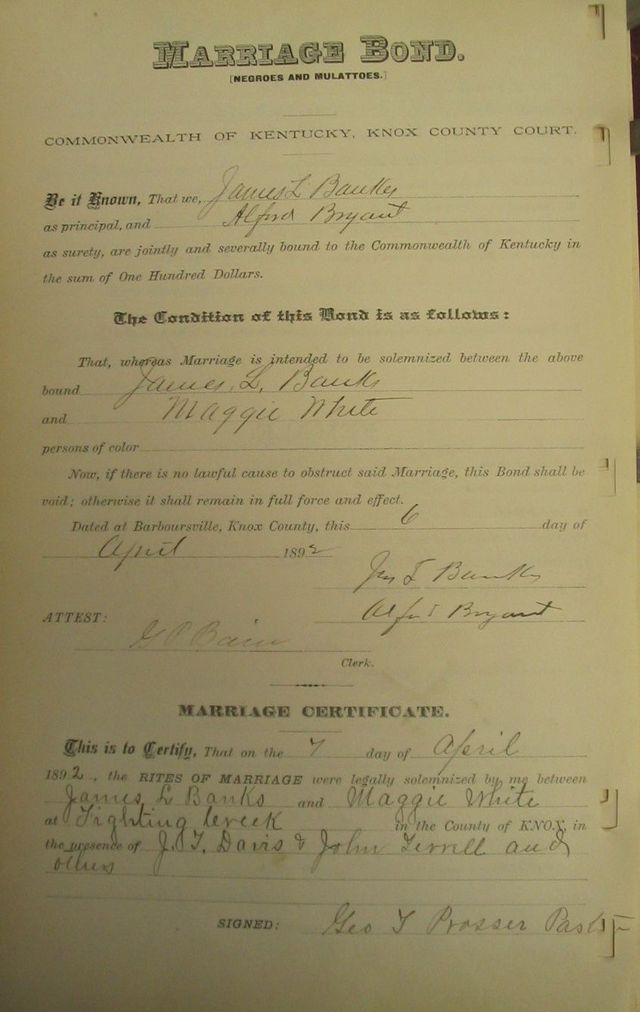 MARRIAGE BOND.
[NEGROES AND MULATTOES.]
COMMONWEALTH OF KENTUCKY, KNOX COUNTY COURT.
Be it Known, That we, James L Banks
as principal, and Alfred Bryant
as surety, are jointly and severally bound to the Commonwealth of Kentucky in
the sum of One Hundred Dollars.
The Condition of this Bond is as follows:
That, whereas Marriage is intended to be solemnized between the above
bound James, L, Banks
and Maggie White
persons of color
Now, if there is no lawful cause to obstruct said Marriage, this Bond shall be
void; otherwise it shall remain in full force and effect.
Dated at Barboursville, Knox County, this 6 day of
April 1892
Banks
Bryant
ATTEST:
G P Bain
Clerk.
MARRIAGE CERTIFICATE.
This is to Certify, That on the 7 day of April
1892, the RITES OF MARRIAGE were legally solemnized by me between
James L Banks and Maggie White
at Fighting Creek in the County of KNOX, in
the presence of J. T. Davis & John Terrell and
others
SIGNED: Geo T Prosser Pastor